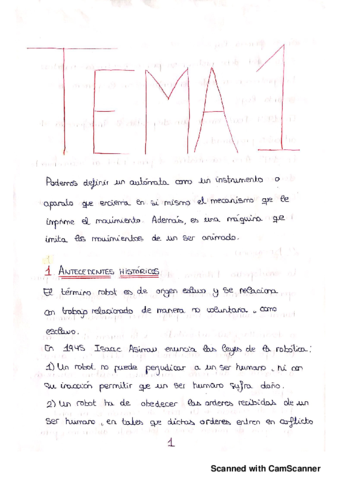 TEMA 1
Podemos definir un autómata como un instrumento o
aparato que encierra en si mismo el mecanismo que le
imprime el movimiento. Además, es una máquina que
imita los movimientos de un ser animado.
1 ANTECEDENTES HISTÓRICOS
El término robot es de origen eslavo y se relaciona
con trabajo relacionado de manera no voluntaria, como
esclavo.
En 1945 Isaac Asimov enuncia las leyes de la robótica:
1) Un robot no puede perjudicar a un ser humano, ni con
su inacción permitir que un ser humano sufra daño.
2) Un robot ha de obedecer las órdenes recibidas de un
ser humano, en tales que dichas ordenes entren en conflicto
1
Scanned with CamScanner